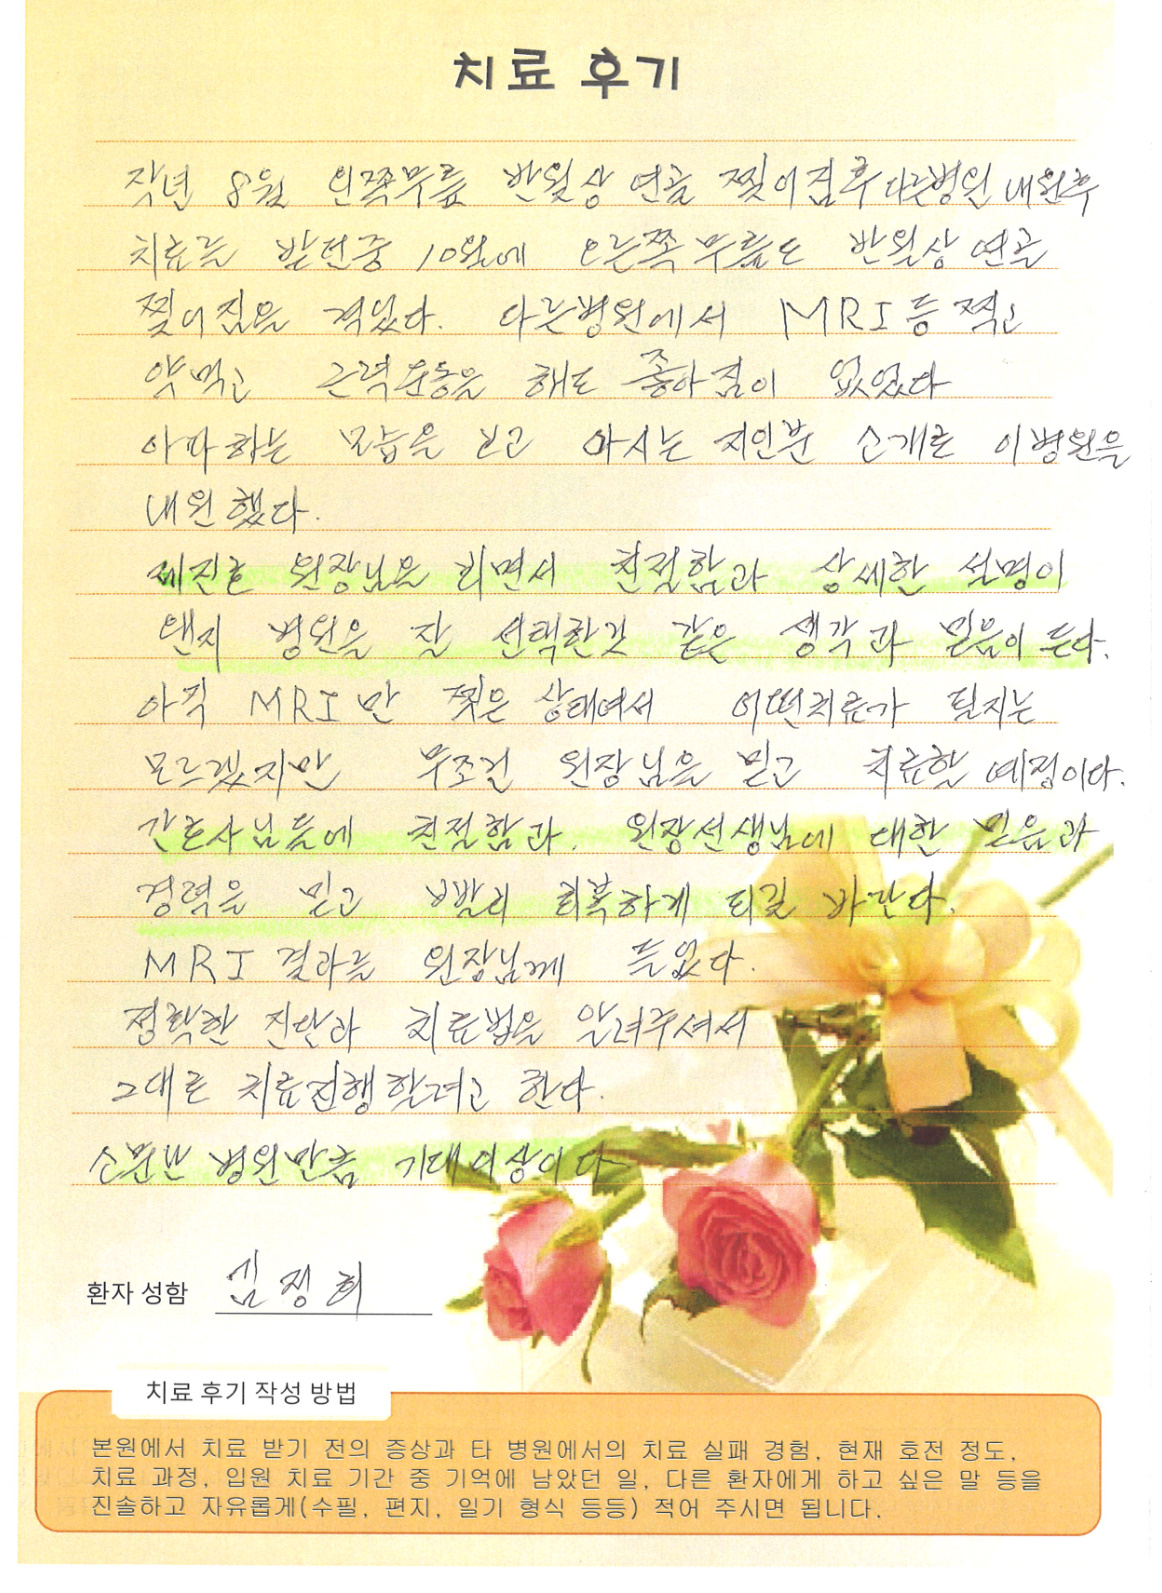 치료 후기
작년 8월 왼쪽무릎 반월상 연골 찢어짐후 다른병원 내원후
치료를 받던중 10월에 오른쪽무릎도 반월상 연골
찢어짐을 겪었다. 다른병원에서 MRI등 찍고
약먹고 근력운동을 해도 좋아짐이 없었다
아파하는 모습을 보고 아시는 지인분 소개로 이병원을
내원했다.
제진호 원장님을 뵈면서 친절함과 상세한 설명이
왠지 병원을 잘 선택한것 같은 생각과 믿음이 든다.
아직 MRI만 찢은 상태여서 어떤치료가 될지는
모르겠지만 무조건 원장님을 믿고 치료할 예정이다.
간호사님들에 친절함과. 원장선생님에 대한 믿음과
경력을 믿고 회복하게 되길 바란다.
MRI 결과를 원장님께 들었다.
정확한 진단과 치료법을 알려주셔서
그대로 치료진행할려고 한다.
소문난 병원만큼 기대이상이다
환자 성함 김정희
치료 후기 작성 방법
본원에서 치료 받기 전의 증상과 타 병원에서의 치료 실패 경험, 현재 호전 정도,
치료 과정, 입원 치료 기간 중 기억에 남았던 일, 다른 환자에게 하고 싶은 말 등을
진솔하고 자유롭게(수필, 편지, 일기 형식 등등) 적어 주시면 됩니다.